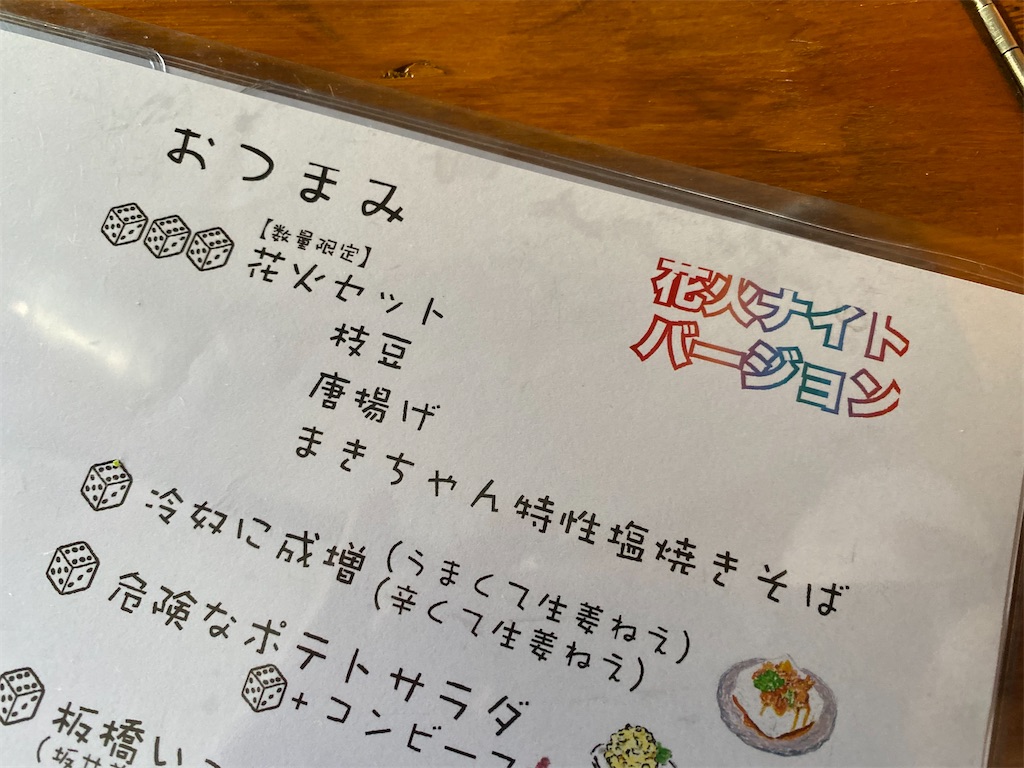 おつまみ
【数量限定】
花火セット
枝豆
唐揚げ
まきちゃん特性塩焼きそば
花火ナイト
バージョン
冷奴に成増（うまくて生姜ねえ）
（辛くて生姜ねえ）
危険なポテトサラダ
+コンビー
板橋い